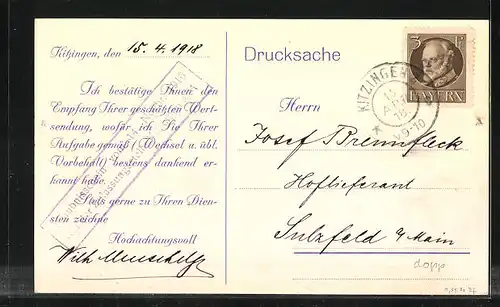 Kitzingen, den 15. 4. 1918
Drucksache
3 Pf
BAYERN
KITZINGEN
Ich bestätige Ihnen den
Empfang Ihrer geschätzten Wert-
sendung, wofür ich Sie Ihrer
Aufgabe gemäß (Wechsel u. übl.
Vorbehalt) bestens dankend er-
kannt habe.
Stets gerne zu Ihren Dien-
sten zeichne
Hochachtungsvoll
Herrn
Josef Brennfleck
Hoflieferant
Sulzfeld a/Main
dopp